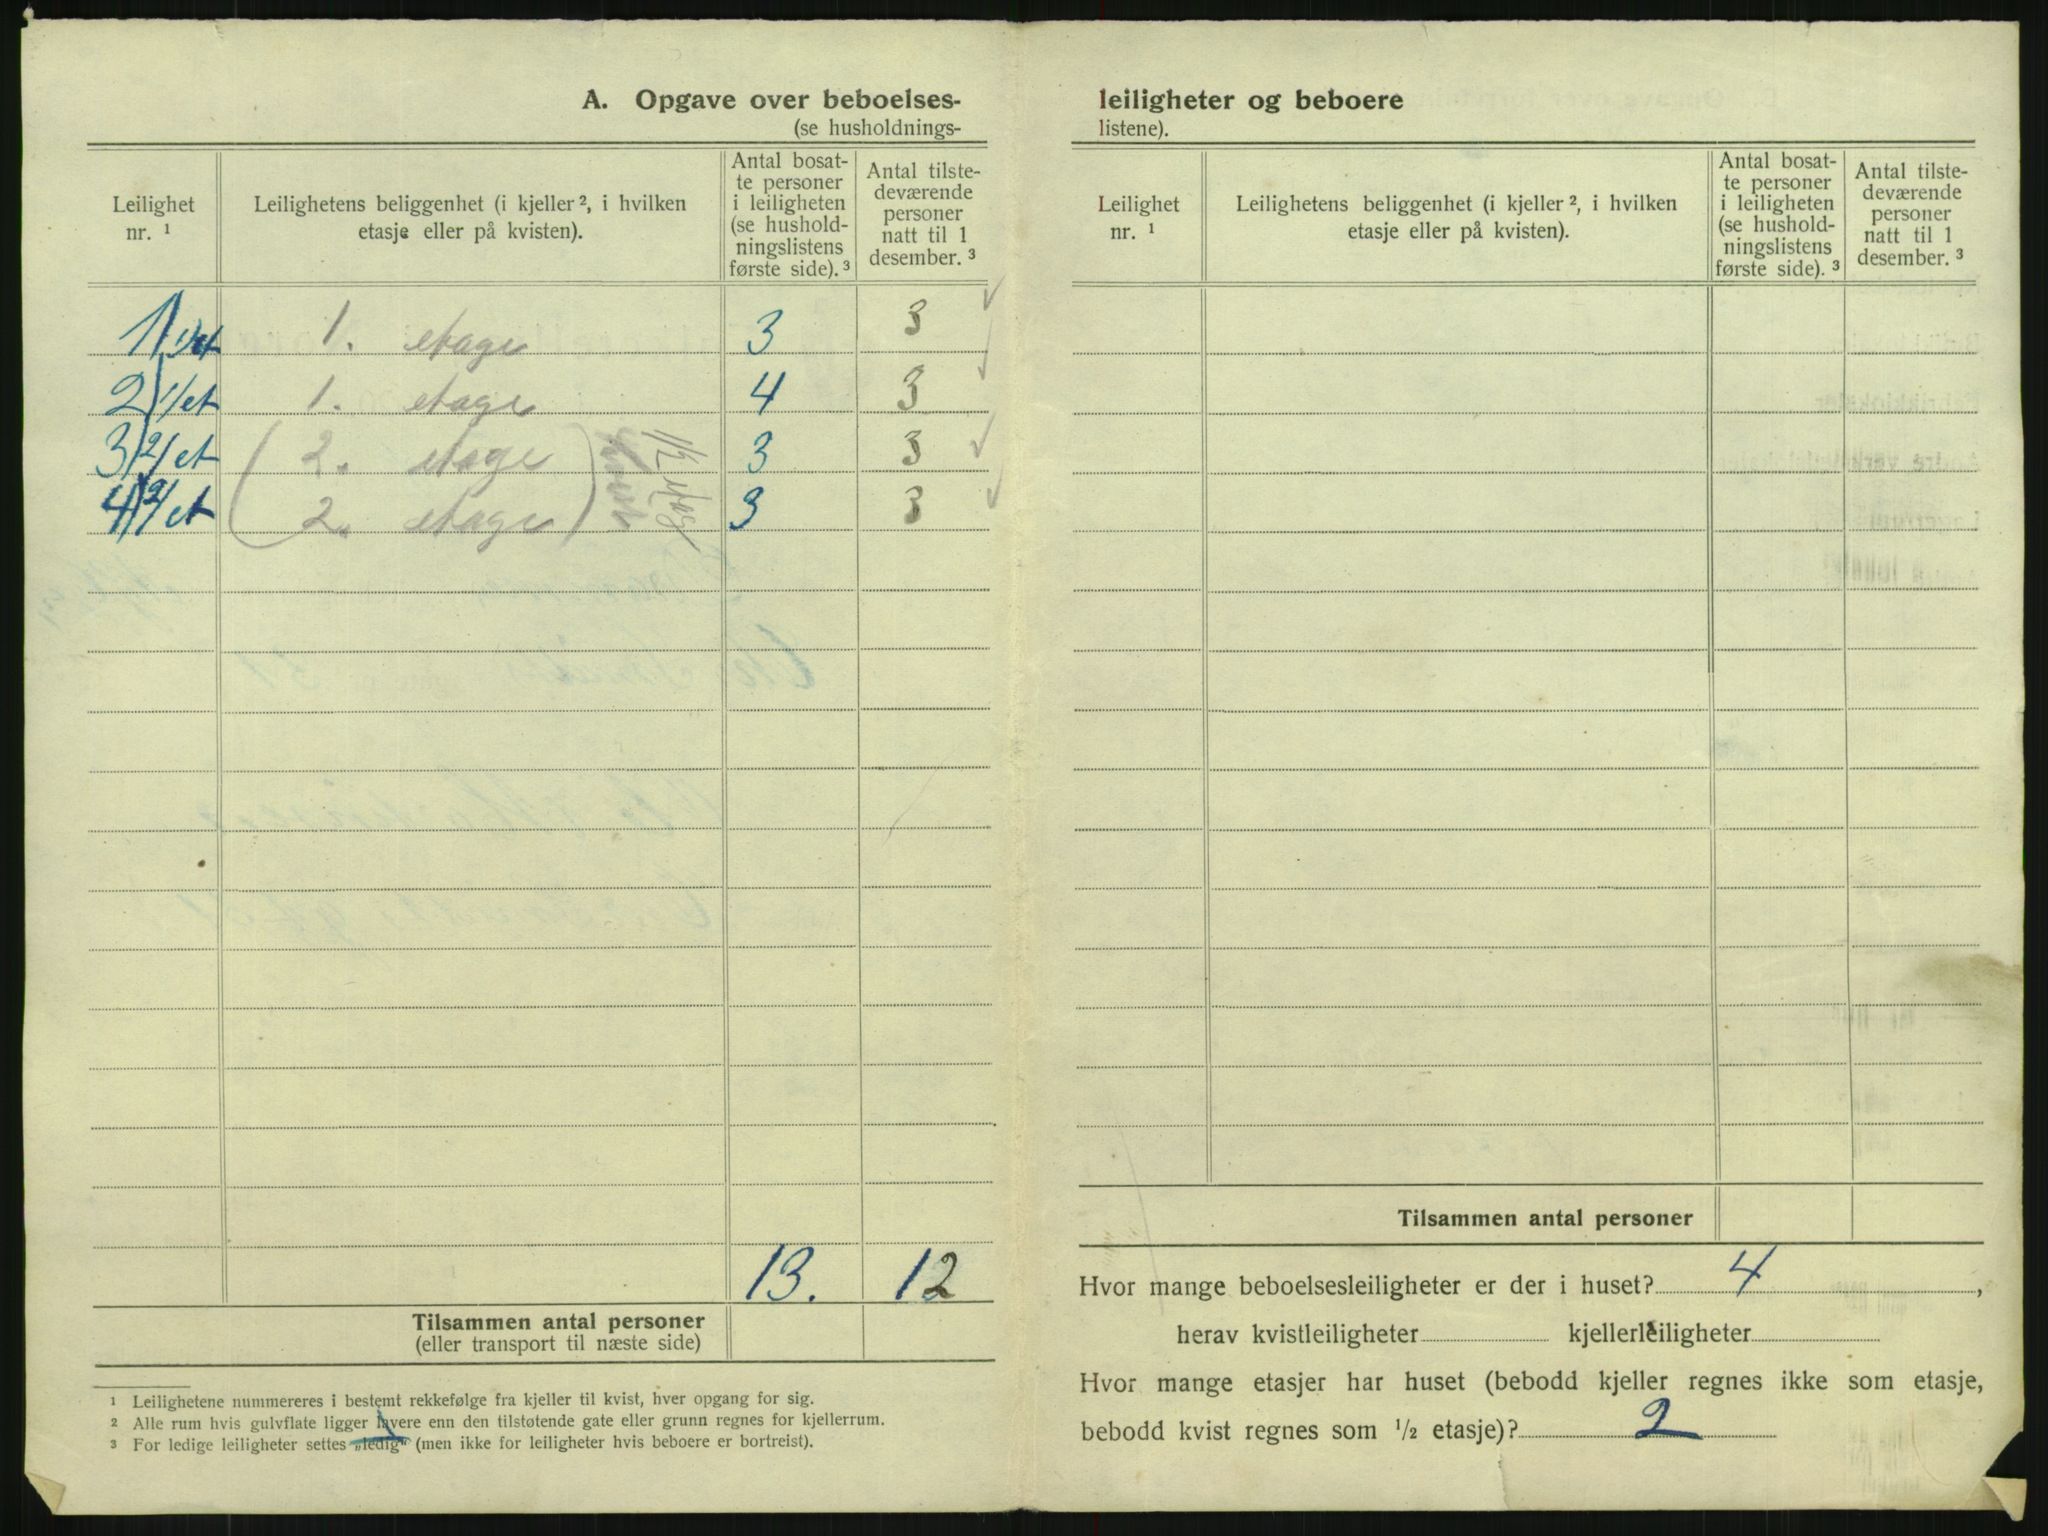 A. Opgave over beboelses-
(se husholdnings-
Leilighet
nr. ¹
Leilighetens beliggenhet (i kjeller ², i hvilken
etasje eller på kvisten).
Antal bosat-
te personer
i leiligheten
(se hushold-
ningslistens
første side). ³
Antal tilste-
deværende
personer
natt til 1
desember. ³
1/ 1/et 1. etage 3 3
2/ 1/et 1. etage 4 3
3/ 2/et ( 2. etage ) 1/2 etage 3 3
4/ 2/et ( 2. etage ) 3 3
13. 12
Tilsammen antal personer
(eller transport til næste side)
¹ Leilighetene nummereres i bestemt rekkefølge fra kjeller til kvist, hver opgang for sig.
² Alle rum hvis gulvflate ligger lavere enn den tilstøtende gate eller grunn regnes for kjellerrum.
³ For ledige leiligheter settes „ledig" (men ikke for leiligheter hvis beboere er bortreist).
leiligheter og beboere
listene).
Leilighet
nr. ¹
Leilighetens beliggenhet (i kjeller ², i hvilken
etasje eller på kvisten).
Antal bosat-
te personer
i leiligheten
(se hushold-
ningslistens
første side). ³
Antal tilste-
deværende
personer
natt til 1
desember. ³
Tilsammen antal personer
Hvor mange beboelsesleiligheter er der i huset? 4 ,
herav kvistleiligheter kjellerleiligheter
Hvor mange etasjer har huset (bebodd kjeller regnes ikke som etasje,
bebodd kvist regnes som ½ etasje)? 2